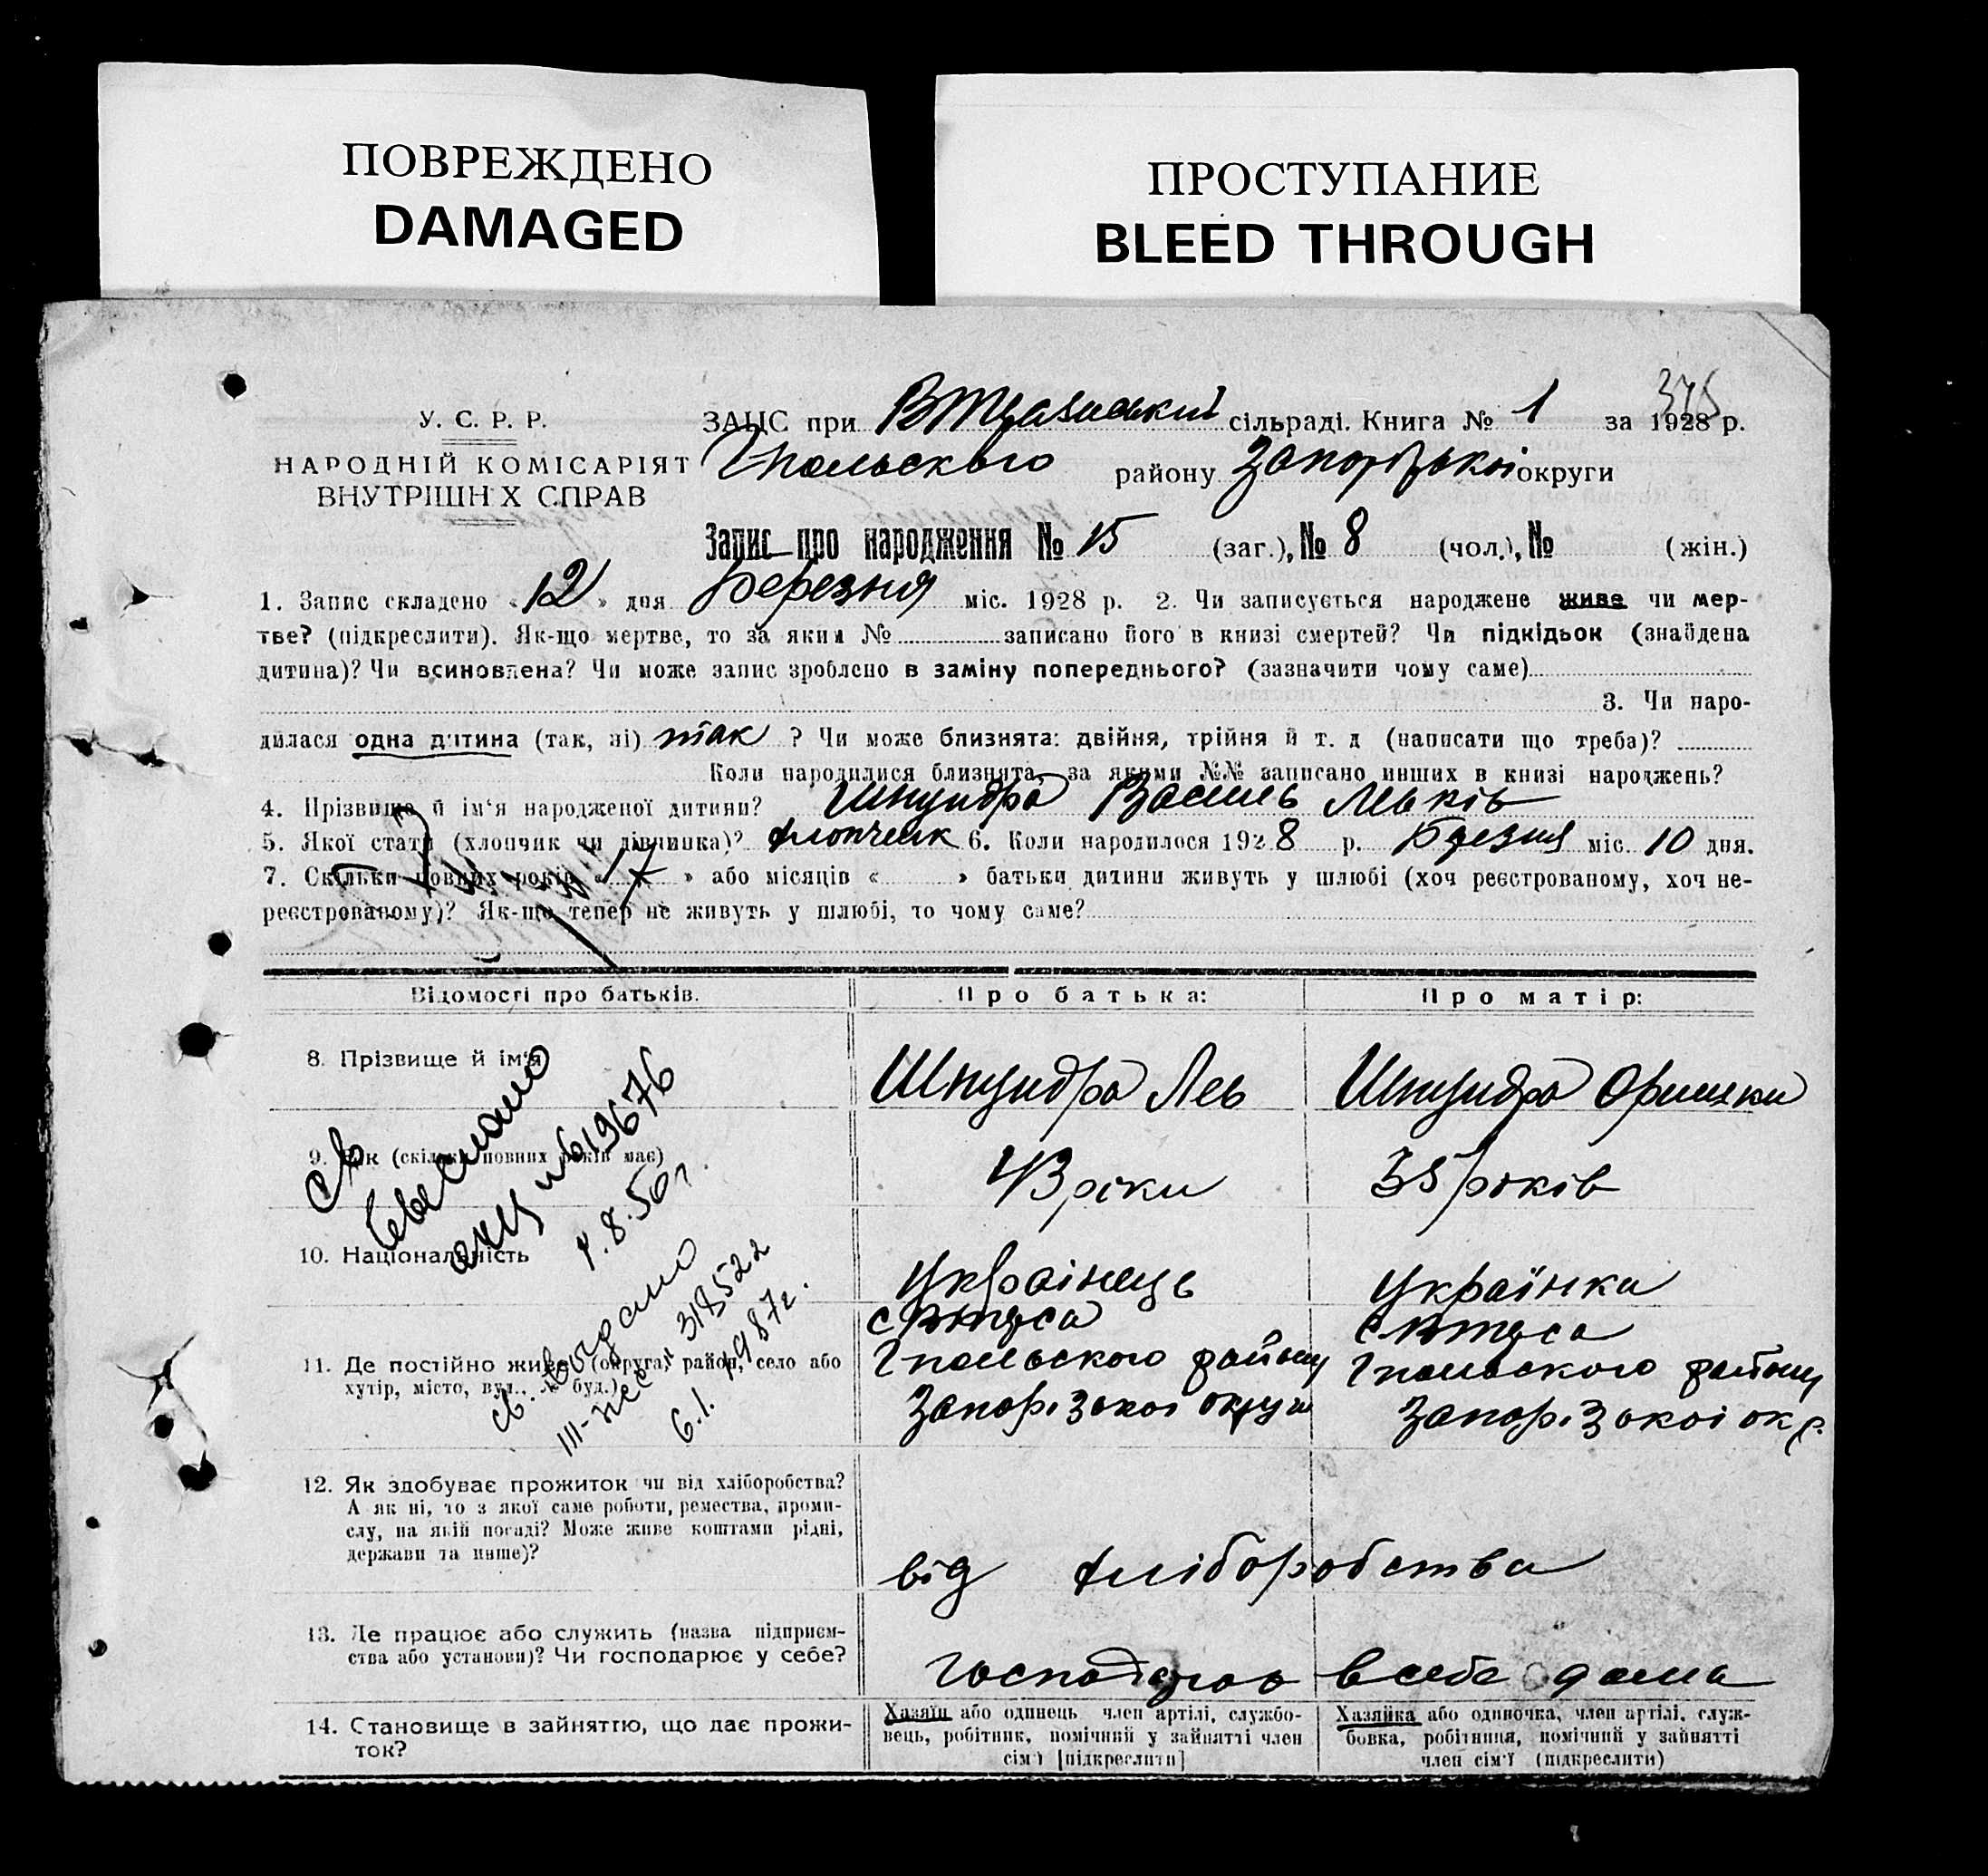 ПОВРЕЖДЕНО
DAMAGED
ПРОСТУПАНИЕ
BLEED THROUGH
345
У. С. Р. Р.
НАРОДНІЙ КОМІСАРІЯТ
ВНУТРІШН Х СПРАВ
ЗАЦС при сільраді. Книга № 1 за 1928 р.
району Запорізької округи
Запис про народження № 15 (заг.), № 8 (чол.), № (жін.)
1. Запис складено « 12 » дня Березня міс. 1928 р. 2. Чи записується народжене живе чи мер-
тве? (підкреслити). Як-що мертве, то за яким № записано його в книзі смертей? Чи підкідьок (знайдена
дитина)? Чи всиновлена? Чи може запис зроблено в заміну попереднього? (зазначити чому саме)
3. Чи наро-
дилася одна дитина (так, ні) так ? Чи може близнята: двійня, трійня й т. д (написати що треба)?
Коли народилися близнята, за якими №№ записано инших в книзі народжень?
4. Прізвище й ім'я народженої дитини? Шпундра Василь Львів
5. Якої статі (хлопчик чи дівчинка)? хлопчик 6. Коли народилося 1928 р. Березня міс. 10 дня.
7. Скільки повних років « 17 » або місяців « » батьки дитини живуть у шлюбі (хоч реєстрованому, хоч не-
реєстрованому)? Як-що тепер не живуть у шлюбі, то чому саме?
Відомості про батьків. Про батька: Про матір:
8. Прізвище й ім'я Шпундра Лев Шпундра Оришки
9. Вік (скільки повних років має) 43 роки 35 років
10. Національність Українець Українка
11. Де постійно живе (округа, район, село або
хутір, місто, вул., № буд.)
району
району
Запорізької округи
Запорізької окр.
св
акц № 619676
7.8.50г.
св. выдано
III-жс № 318522
6.1. 1987г.
12. Як здобуває прожиток чи від хліборобства?
А як ні, то з якої саме роботи, ремества, проми-
слу, на якій посаді? Може живе коштами рідні,
держави та инше)?
від хліборобства
13. Де працює або служить (назва підприєм-
ства або установи)? Чи господарює у себе?
в себе дома
14. Становище в зайняттю, що дає прожи-
ток?
Хазяїн або одинець член артілі, службо-
вець, робітник, помічний у зайнятті член
сім'ї [підкреслити]
Хазяйка або одиночка, член артілі, служ-
бовка, робітниця, помічний у зайнятті
член сім'ї (підкреслити)